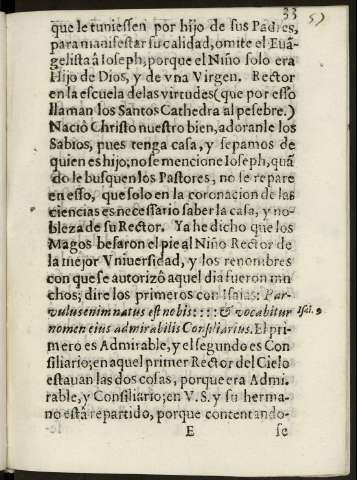 33
5)
que le tuuiessen por hijo de sus Padres,
para manifestar su calidad, omite el Euã-
gelista â Ioseph, porque el Niño solo era
Hijo de Dios, y de vna Virgen. Rector
en la escuela de las virtudes (que por esso
llaman los Santos Cathedra al pesebre.)
Naciô Christo nuestro bien, adoranle los
Sabios, pues tenga casa, y sepamos de
quien es hijo; no se mencione Ioseph, quã
do le busquen los Pastores, no le repare
en esso, que solo en la coronacion de las
ciencias es necessario saber la casa, y no-
bleza de su Rector. Ya he dicho que los
Magos besaron el pie al Niño Rector de
la mejor Vniuersidad, y los renombres
con que se autorizô aquel dia fueron mu
chos; dire los primeros con Isaias: Par-
vulus enim natus est nobis: : : : & vocabitur Isai. 9
nomen eius admirabilis Consiliarius. El pri-
mero es Admirable, y el segundo es Con
siliario; en aquel primer Rector del Cielo
estauan las dos cosas, porque era Admi-
rable, y Consiliario; en V.S. y su herma-
no està repartido, porque contentando-
E se